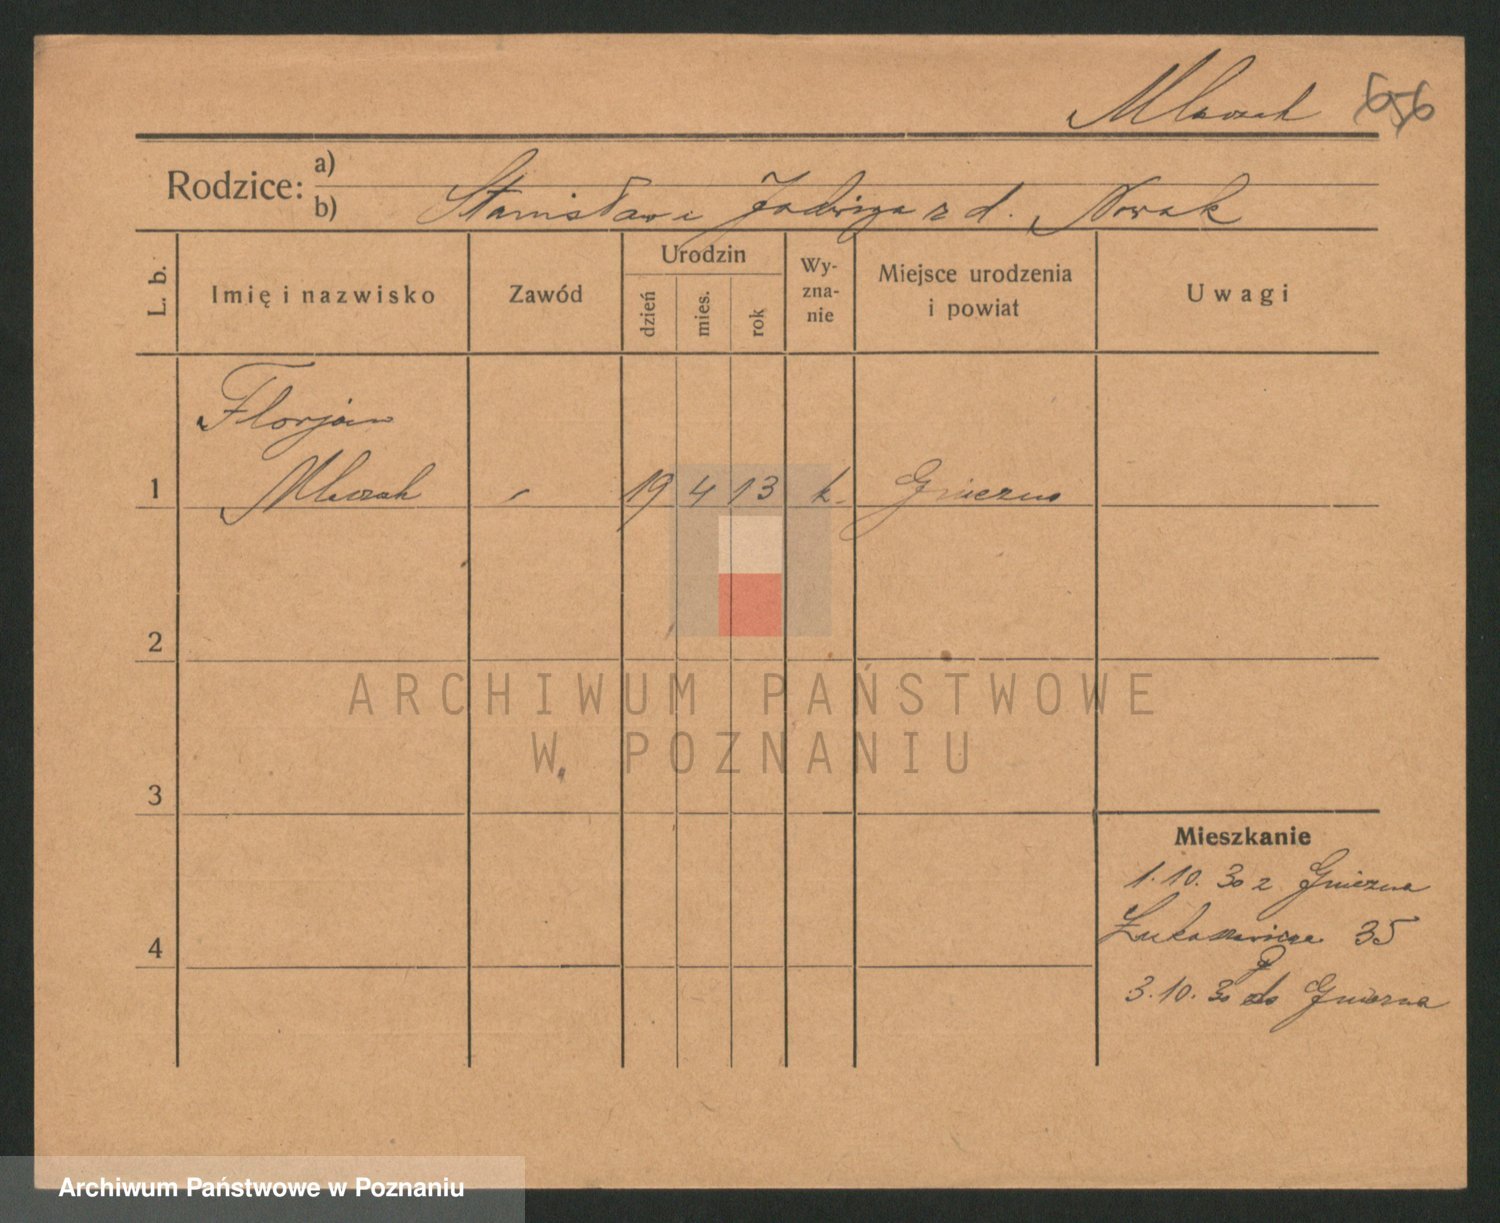 Mlaczak 656
Rodzice: a)
b) Stanisław i Jadwiga z d. Nowak
L. b.
Imię i nazwisko
Zawód
Urodzin
dzień
mies.
rok
Wy-
zna-
nie
Miejsce urodzenia
i powiat
Uwagi
Florjan
1 Mlaczak 19 4 13 k. Gniezno
2
3
4
Mieszkanie
1.10.30 z Gniezna
Łukaszewicza 35
3.10.30 do Gniezna
ARCHIWUM PAŃSTWOWE
W POZNANIU
Archiwum Państwowe w Poznaniu